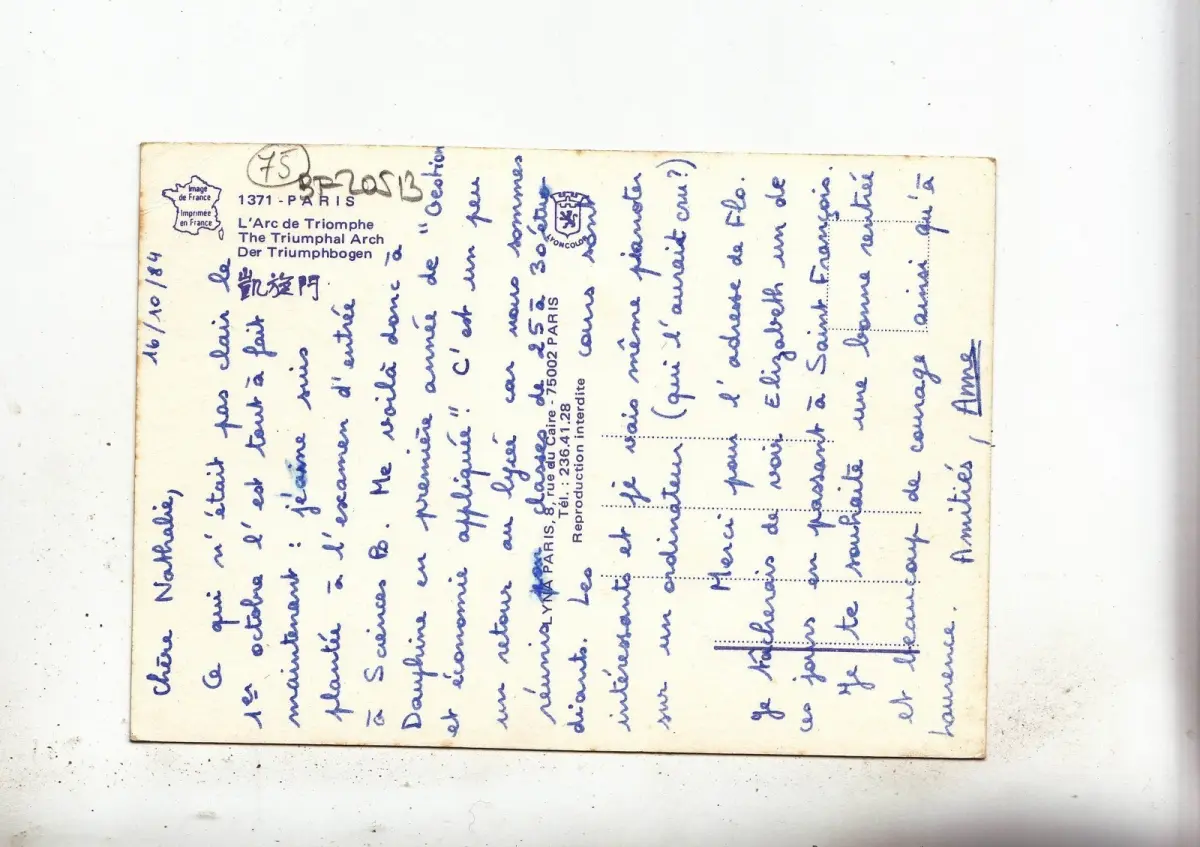 75
BF 205B
Image
de France
Imprimée
en France
1371 - PARIS
L'Arc de Triomphe
The Triumphal Arch
Der Triumphbogen
凱旋門
LYNA PARIS, 8, rue du Caire - 75002 PARIS
Tél. : 236.41.28
Reproduction interdite
16/10/84
Chère Nathalie,
Ce qui n'était pas clair le
1er octobre l'est tout à fait
maintenant : je me suis
plantée à l'examen d'entrée
à Sciences Po. Me voilà donc à
Dauphine en première année de "Gestion
et économie appliquée". C'est un peu
un retour au lycée car nous sommes
réunis par classes de 25 à 30 étu-
diants. Les cours sont
intéressants et je vais même pianoter
sur un ordinateur (qui l'aurait cru ?)
Merci pour l'adresse de Flo.
Je tâcherais de voir Elizabeth un de
ces jours en passant à Saint François.
Je te souhaite une bonne rentrée
et beaucoup de courage ainsi qu'à
Laurence. Amitiés, Anne